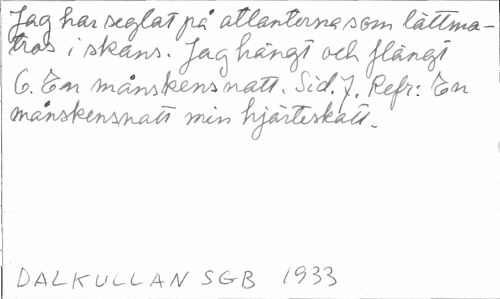 Jag har seglat på atlanterna som lättma-
tros i skans. Jag hängt och flängt
6. En månskensnatt. Sid. 7. Refr: En
månskensnatt min hjärteskatt.
DALKULLAN SGB 1933